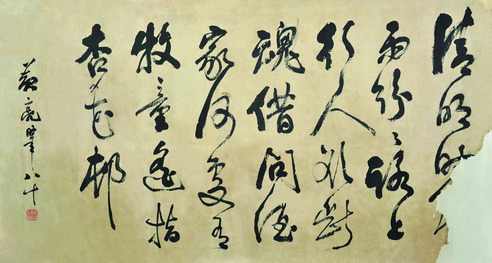 清明時
雨紛〻路上
行人欲斷
魂借問酒
家何處有
牧童遙指
杏花邨
亮 八十